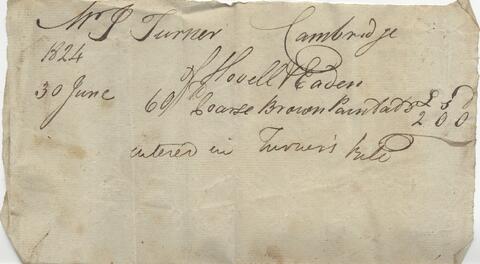 Mr J Turner Cambridge
1824
of Hovell & Eaden
30 June 60 Coarse Brown Paint at 8 £ s d
2 0 0
entered in Turner's bill